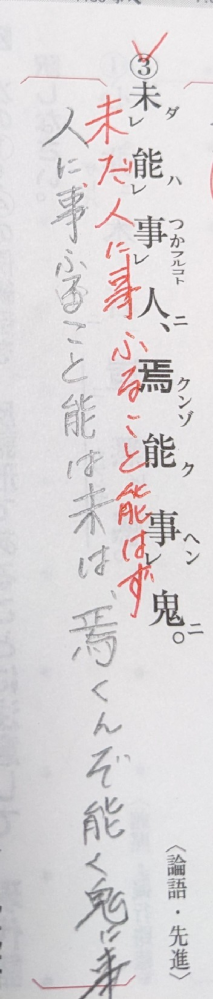 ③未ダレ能ハレ事つかフルコトレ人ニ、焉クンゾ能ク事ヘンレ鬼ニ。
未だ人に事ふること能はず
人に事ふること能は未は、焉くんぞ能く鬼に事
〈論語・先進〉